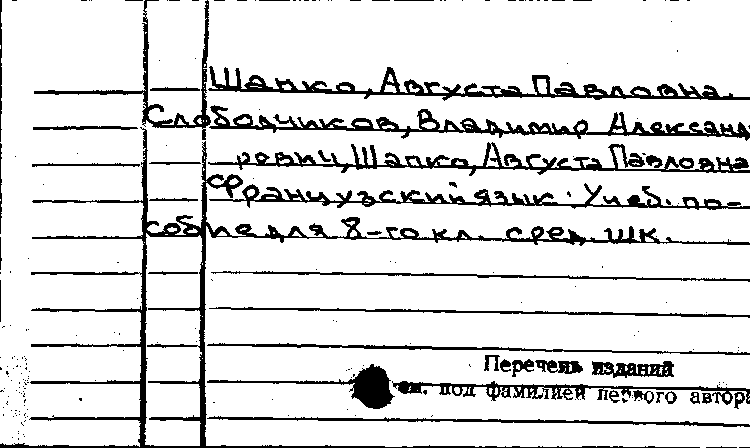 Шапко, Августа Павловна.
Слободчиков, Владимир Александ
рович, Шапко, Августа Павловна
Французский язык. Учеб. по-
собие для 8-го кл. сред. шк.
Перечень изданий
см. под фамилией первого автора